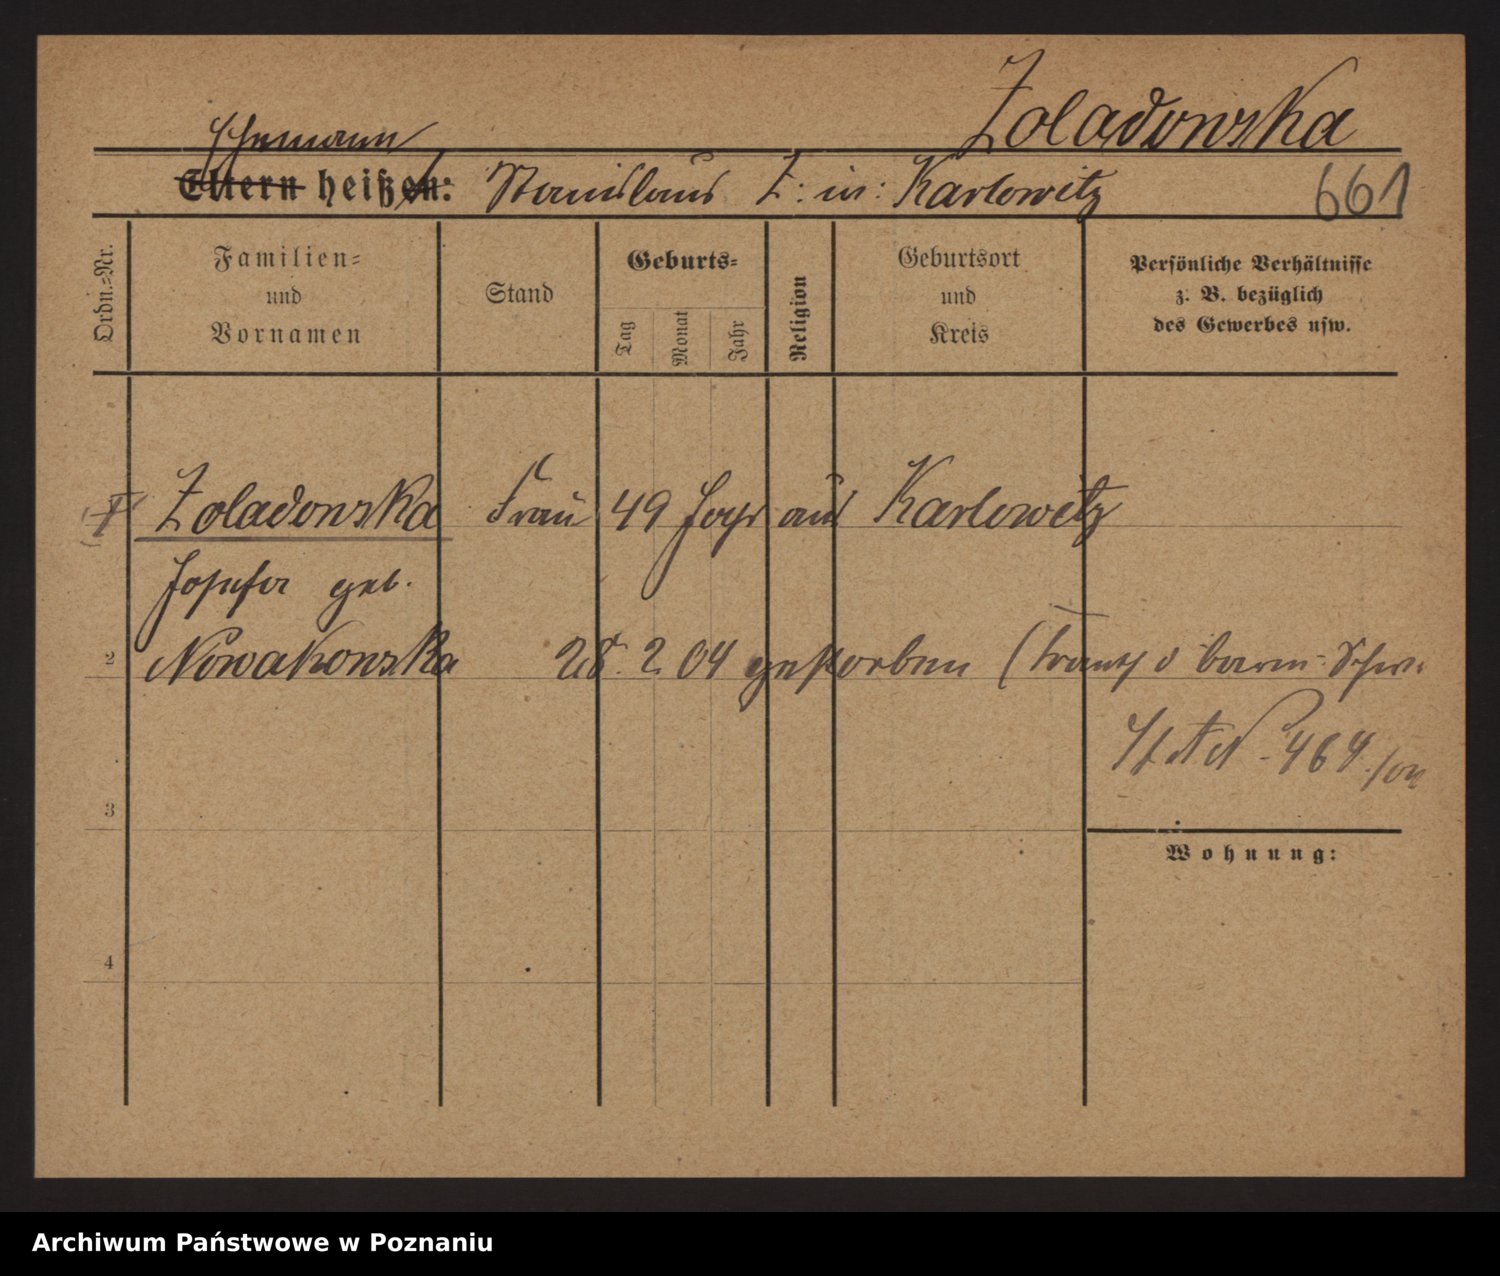 Zoladowska
Ehemann
Eltern heißen: Stanislaus Z: in: Karlowitz 661
Ordn.=Nr.
Familien=
und
Vornamen
Stand
Geburts=
Tag
Monat
Jahr
Religion
Geburtsort
und
Kreis
Persönliche Verhältnisse
z. B. bezüglich
des Gewerbes usw.
Zoladowska Frau 49 Jahr aus Karlowitz
Josefa geb.
2 Nowakowska 28. 2. 04 gestorben ( d barm. Schw.
464
3
Wohnung:
4
Archiwum Państwowe w Poznaniu